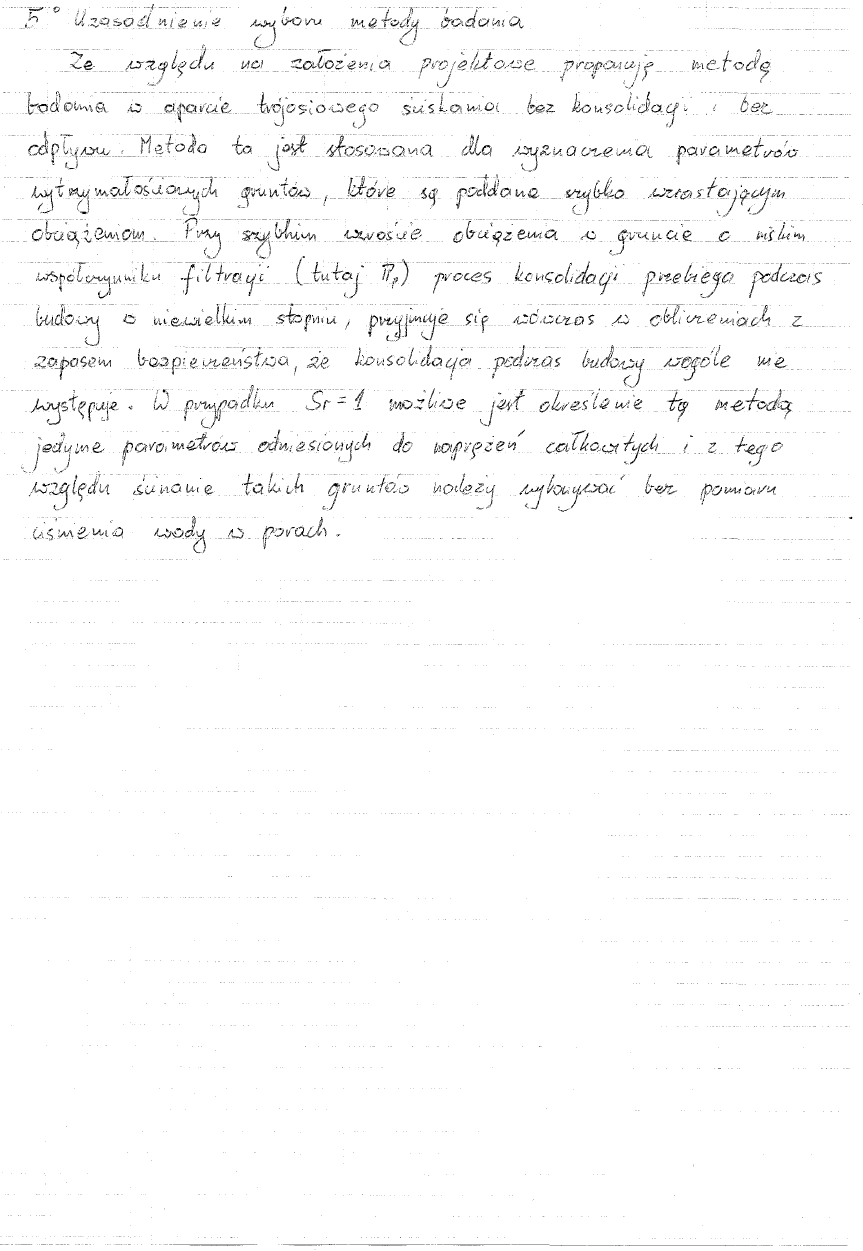 5° Uzasadnienie wyboru metody badania
Ze względu na założenia projektowe proponuję metodę
badania w aparcie trójosiowego ściskania bez konsolidacji i bez
odpływu. Metoda ta jest stosowana dla wyznaczenia parametrów
wytrzymałościowych gruntów, które są poddane szybko wzrastającym
obciążeniom. Przy szybkim wzroście obciążenia w gruncie o niskim
współczynniku filtracji (tutaj Πp) proces konsolidacji przebiega podczas
budowy w niewielkim stopniu, przyjmuje się wówczas w obliczeniach z
zapasem bezpieczeństwa, że konsolidacja podczas budowy wogóle nie
występuje. W przypadku Sr = 1 możliwe jest określenie tą metodą
jedynie parametrów odniesionych do naprężeń całkowitych i z tego
względu ścinanie takich gruntów należy wykonywać bez pomiaru
ciśnienia wody w porach.